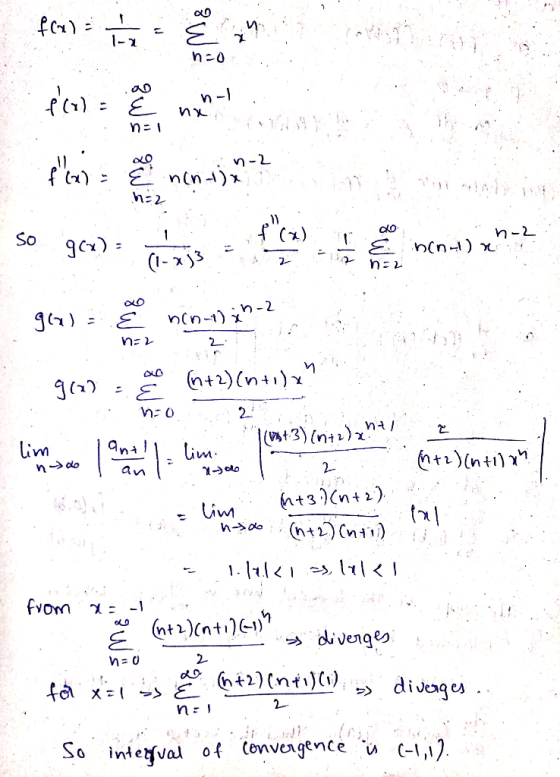 f(x) = 1/(1-x) = Σ_{n=0}^{∞} x^n
f'(x) = Σ_{n=1}^{∞} nx^{n-1}
f''(x) = Σ_{n=2}^{∞} n(n-1)x^{n-2}
So g(x) = 1/(1-x)^3 = f''(x)/2 = 1/2 Σ_{n=2}^{∞} n(n-1) x^{n-2}
g(x) = Σ_{n=2}^{∞} n(n-1) x^{n-2}/2
g(x) = Σ_{n=0}^{∞} (n+2)(n+1) x^n/2
lim_{n→∞} |a_{n+1}/a_n| = lim_{x→∞} |(n+3)(n+2) x^{n+1}/2 2/((n+2)(n+1) x^n)|
= lim_{n→∞} (n+3)(n+2)/((n+2)(n+1)) |x|
= 1.|x| < 1 ⇒ |x| < 1
from x = -1
Σ_{n=0}^{∞} (n+2)(n+1)(-1)^n/2 ⇒ diverges
for x=1 ⇒ Σ_{n=1}^{∞} (n+2)(n+1)(1)/2 ⇒ diverges.
So interval of convergence is (-1,1).